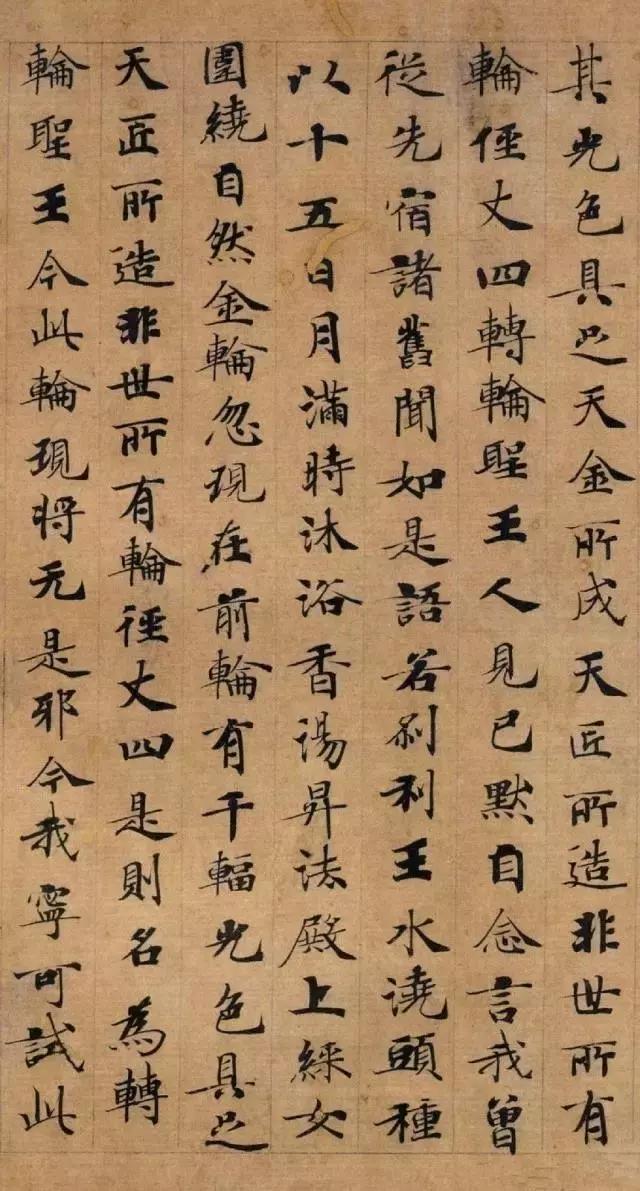 其光色具足天金所成天匠所造非世所有
輪俓丈四轉輪聖王人見已默自念言我曾
從先宿諸舊聞如是語若刹利王水澆頭種
以十五日月滿時沐浴香湯昇法殿上婇女
圍繞自然金輪忽現在前輪有千輻光色具足
天匠所造非世所有輪徑丈四是則名為轉
輪聖王今此輪現將无是邪今我寧可試此